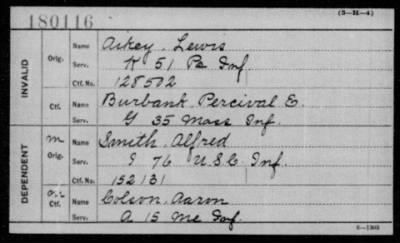 180116
(3-M-4)
INVALID
Orig. Name Aikey, Lewis
Serv. K 51 Pa Inf.
Ctf. No. 128502
Ctf. Name Burbank, Percival E.
Serv. G 35 Mass Inf.
DEPENDENT
M Orig. Name Smith, Alfred
Serv. I 76 U.S.C. Inf.
Ctf. No. 152131
Ctf. Name Colson, Aaron
Serv. A 15 Me Inf.